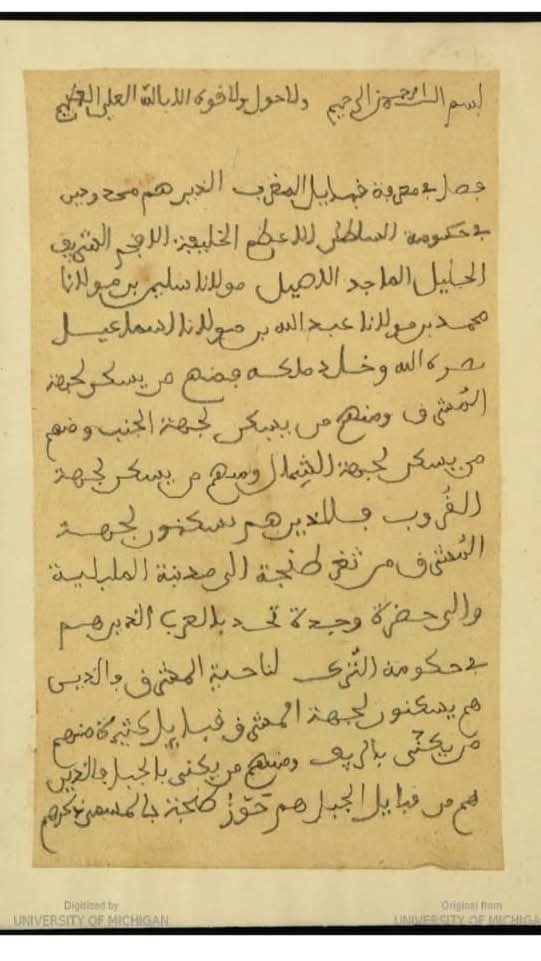 بسم الله الرحمن الرحيم ولا حول ولا قوة الا بالله العلي العظيم
فصل في معرفة قبايل المغرب الذين هم محدودين
في حكومة السلطان الاعظم الخليفة الافخم الشريف
الجليل الماجد الاصيل مولانا سليمن بن مولانا
محمد بن مولانا عبد الله بن مولانا اسماعيل
نصره الله وخلد ملكه فمنهم من يسكن لجهة
المشرق ومنهم من يسكن لجهة الجنب ومنهم
من يسكن لجهة الشمال ومنهم من يسكن لجهة
الغروب فالذين هم يسكنون لجهة
المشرق من ثغر طنجة الى مدينة المليلية
والى حضرة وجدة تحد بالعرب الذين هم
في حكومة الترك لناحية المشرق والذين
هم يسكنون لجهة المشرق قبايل كثيرة منهم
من يكنى بالريف ومنهم من يكنى بالجبل فالذين
هم من قبايل الجبل هم حوز طنجة
Digitized by
UNIVERSITY OF MICHIGAN
Original from
UNIVERSITY OF MICHIGAN